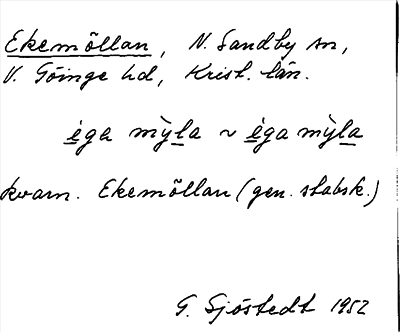 Ekemöllan, N. Sandby sn,
V. Göinge hd, Krist. län.
ėga mỳla ~ ėga mỳla
kvarn. Ekemöllan (gen. stabsk.)
G. Sjöstedt 1952